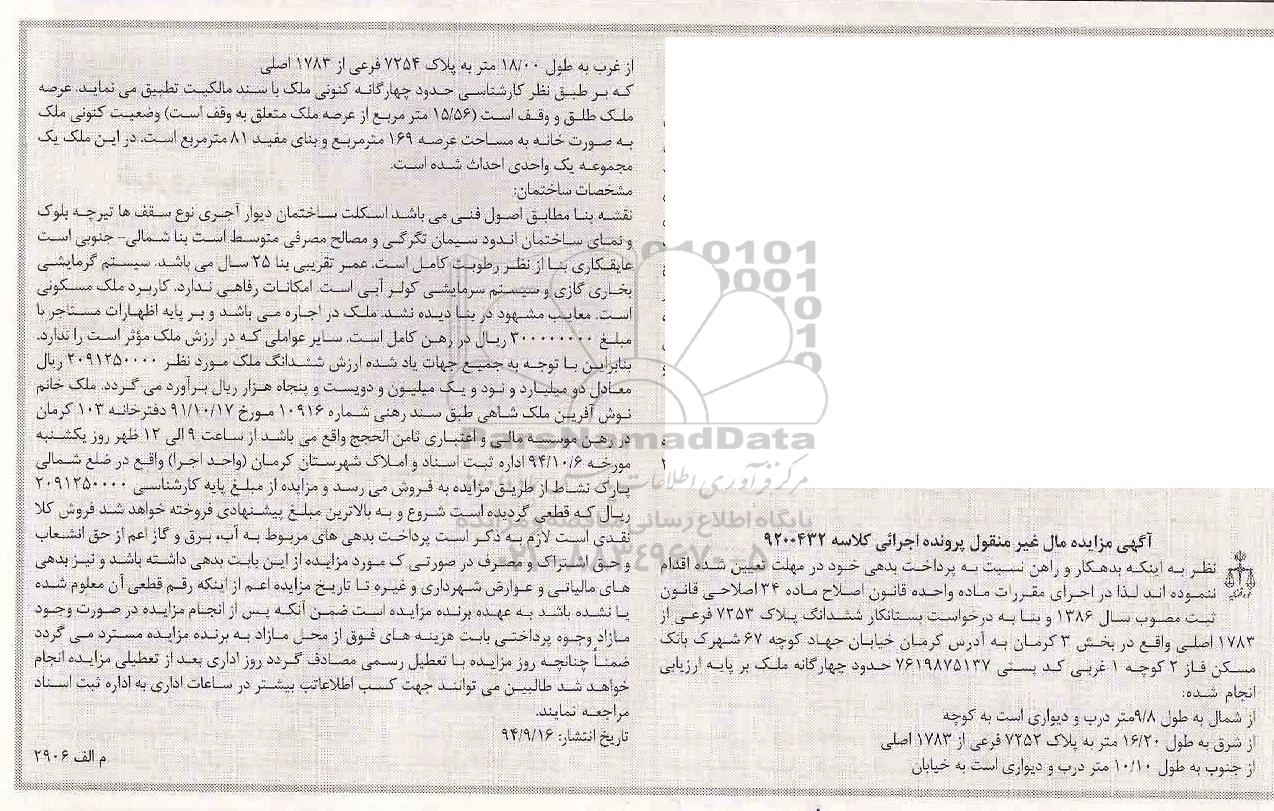 آگهی مزایده مال غیر منقول پرونده اجرائی کلاسه ۹۲۰۰۴۳۲
نظر به اینکه بدهکار و راهن نسبت به پرداخت بدهی خود در مهلت تعیین شده اقدام
ننموده اند لذا در اجرای مقررات ماده واحده قانون اصلاح ماده ۳۴ اصلاحی قانون
ثبت مصوب سال ۱۳۸۶ و بنا به درخواست بستانکار ششدانگ پلاک ۷۲۵۳ فرعی از
۱۷۸۳ اصلی واقع در بخش ۳ کرمان به آدرس کرمان خیابان جهاد کوچه ۶۷ شهرک بانک
مسکن فاز ۲ کوچه ۱ غربی کد پستی ۷۶۱۹۸۷۵۱۳۷ حدود چهارگانه ملک بر پایه ارزیابی
انجام شده:
از شمال به طول ۹/۸متر درب و دیواری است به کوچه
از شرق به طول ۱۶/۲۰ متر به پلاک ۷۲۵۲ فرعی از ۱۷۸۳ اصلی
از جنوب به طول ۱۰/۱۰ متر درب و دیواری است به خیابان
از غرب به طول ۱۸/۰۰ متر به پلاک ۷۲۵۴ فرعی از ۱۷۸۳ اصلی
که بر طبق نظر کارشناسی حدود چهارگانه کنونی ملک با سند مالکیت تطبیق می نماید. عرصه
ملک طلق و وقف است (۱۵/۵۶ متر مربع از عرصه ملک متعلق به وقف است) وضعیت کنونی ملک
به صورت خانه به مساحت عرصه ۱۶۹ مترمربع و بنای مفید ۸۱ مترمربع است. در این ملک یک
مجموعه یک واحدی احداث شده است.
مشخصات ساختمان:
نقشه بنا مطابق اصول فنی می باشد اسکلت ساختمان دیوار آجری نوع سقف ها تیرچه بلوک
و نمای ساختمان اندود سیمان تگرگی و مصالح مصرفی متوسط است بنا شمالی- جنوبی است
عایقکاری بنا از نظر رطوبت کامل است. عمر تقریبی بنا ۲۵ سال می باشد. سیستم گرمایشی
بخاری گازی و سیستم سرمایشی کولر آبی است. امکانات رفاهی ندارد. کاربرد ملک مسکونی
است. معایب مشهود در بنا دیده نشد. ملک در اجاره می باشد و بر پایه اظهارات مستاجر با
مبلغ ۳۰۰۰۰۰۰۰۰ ریال در رهن کامل است. سایر عواملی که در ارزش ملک مؤثر است را ندارد.
بنابراین با توجه به جمیع جهات یاد شده ارزش ششدانگ ملک مورد نظر ۲۰۹۱۲۵۰۰۰۰ ریال
معادل دو میلیارد و نود و یک میلیون و دویست و پنجاه هزار ریال برآورد می گردد. ملک خانم
نوش آفرین ملک شاهی طبق سند رهنی شماره ۱۰۹۱۶ مورخ ۹۱/۱۰/۱۷ دفترخانه ۱۰۳ کرمان
در رهن موسسه مالی و اعتباری ثامن الحجج واقع می باشد از ساعت ۹ الی ۱۲ ظهر روز یکشنبه
مورخه ۹۴/۱۰/۶ اداره ثبت اسناد و املاک شهرستان کرمان (واحد اجرا) واقع در ضلع شمالی
پارک نشاط از طریق مزایده به فروش می رسد و مزایده از مبلغ پایه کارشناسی ۲۰۹۱۲۵۰۰۰۰
ریال که قطعی گردیده است شروع و به بالاترین مبلغ پیشنهادی فروخته خواهد شد فروش کلا
نقدی است لازم به ذکر است پرداخت بدهی های مربوط به آب، برق و گاز اعم از حق انشعاب
و حق اشتراک و مصرف در صورتی ک مورد مزایده از این بابت بدهی داشته باشد و نیز بدهی
های مالیاتی و عوارض شهرداری و غیره تا تاریخ مزایده اعم از اینکه رقم قطعی آن معلوم شده
یا نشده باشد به عهده برنده مزایده است ضمن آنکه پس از انجام مزایده در صورت وجود
مازاد وجوه پرداختی بابت هزینه های فوق از محل مازاد به برنده مزایده مسترد می گردد
ضمناً چنانچه روز مزایده با تعطیل رسمی مصادف گردد روز اداری بعد از تعطیلی مزایده انجام
خواهد شد طالبین می توانند جهت کسب اطلاعاتب بیشتر در ساعات اداری به اداره ثبت اسناد
مراجعه نمایند.
تاریخ انتشار: ۹۴/۹/۱۶
م الف ۲۹۰۶
ParsNamadData
پایگاه اطلاع رسانی مناقصه و مزایده